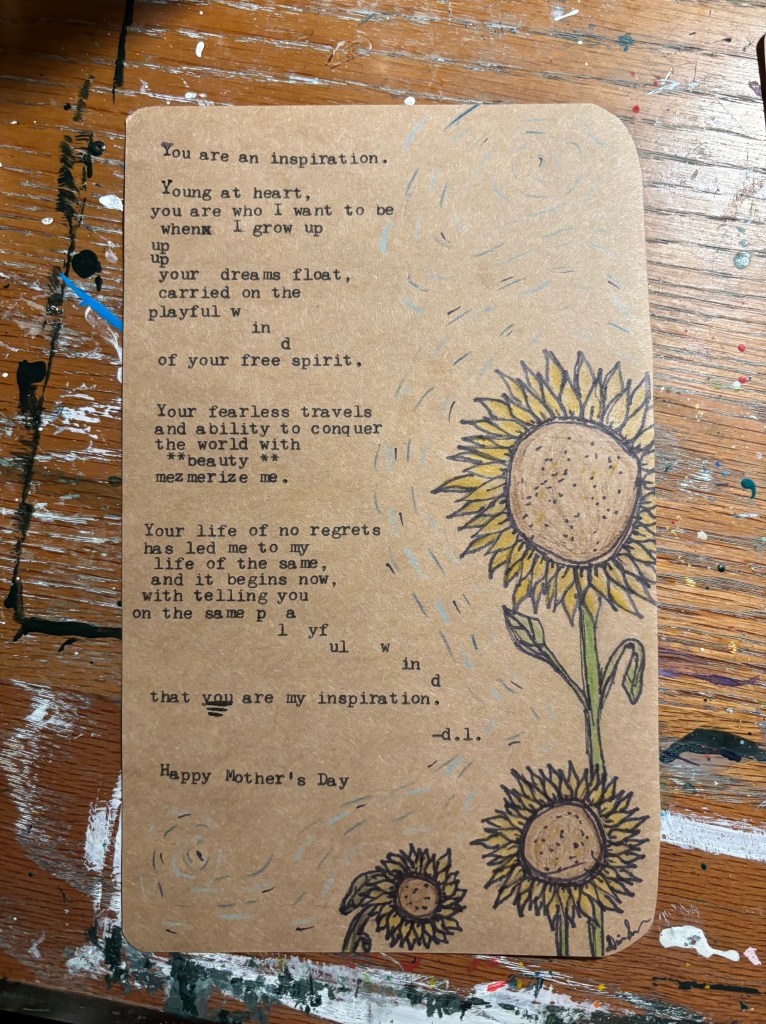 You are an inspiration.
Young at heart,
you are who I want to be
whenx I grow up
up
up
your dreams float,
carried on the
playful w
in
d
of your free spirit.
Your fearless travels
and ability to conquer
the world with
**beauty **
mezmerize me.
Your life of no regrets
has led me to my
life of the same,
and it begins now,
with telling you
on the same p a
l yf
ul w
in
d
that you are my inspiration.
-d.l.
Happy Mother's Day